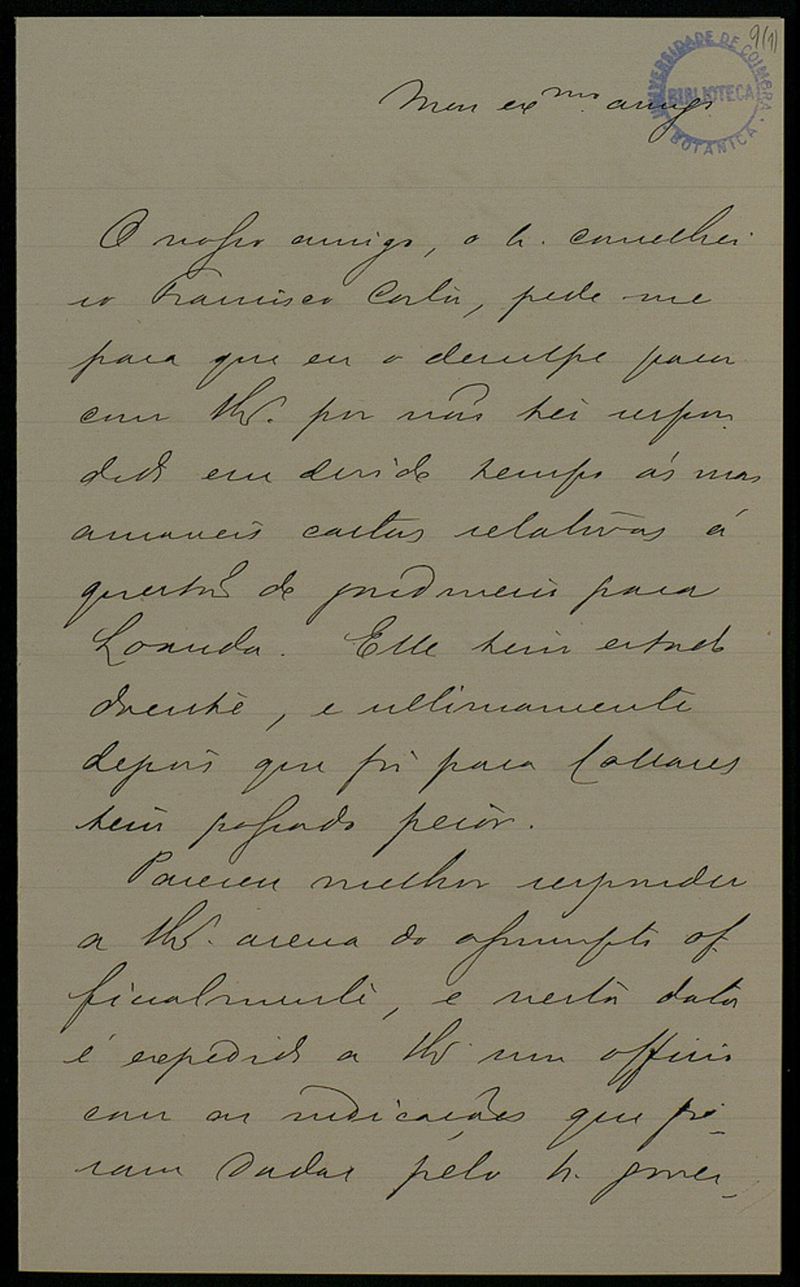 9(1)
UNIVERSIDADE DE COIMBRA
BIBLIOTECA
BOTANICA
Meu ex.mo amigo
O nosso amigo, o Sr. conselhei
ro Francisco Costa, pede-me
para que eu o desculpe para
com V. por não ter respon
dido em devido tempo ás suas
amaveis cartas relativas á
questão de para
Loanda. Elle tem estado
doente, e ultimamente
depois que foi para Collares
tem passado peior.
Pareceu melhor responder
a V. acerca do assumpto of
ficialmente, e nesta data
é expedido a V. um officio
com as indicações que fo-
ram dadas pelo Sr. gover-